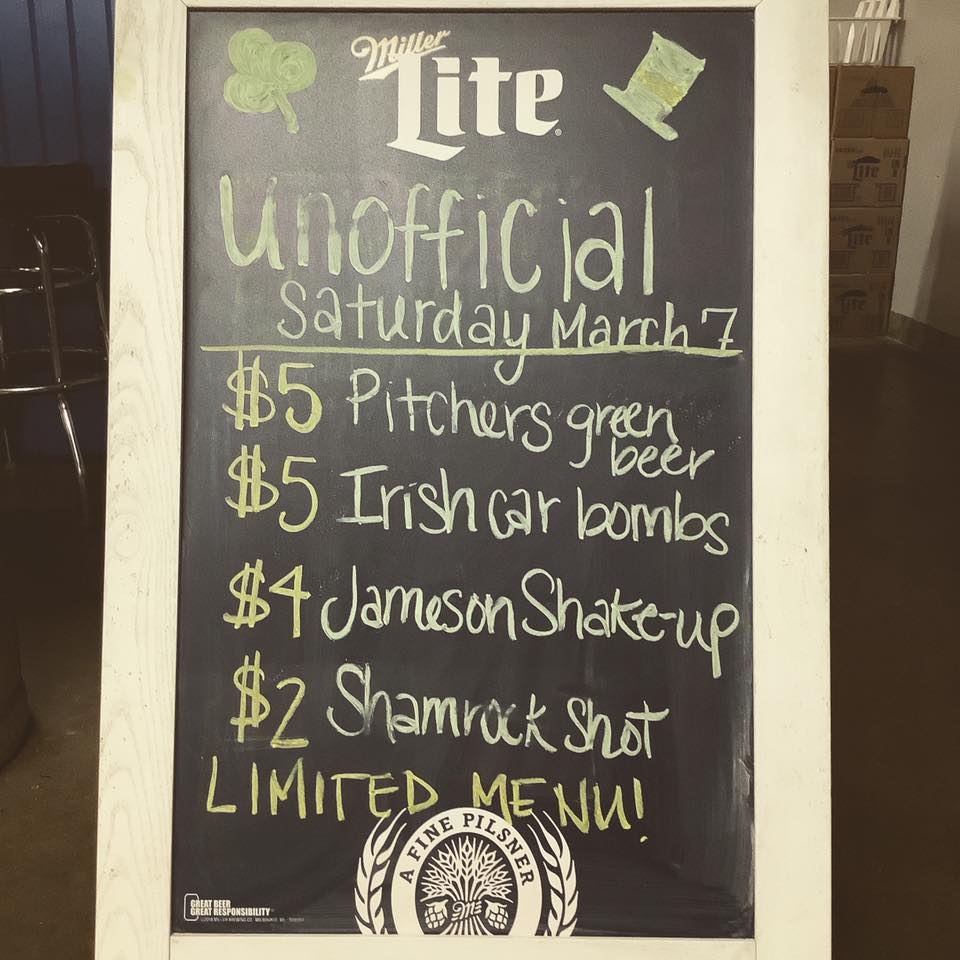 Miller
Lite
Unofficial
Saturday March 7
$5 Pitchers green
beer
$5 Irish car bombs
$4 Jameson Shake-up
$2 Shamrock Shot
LIMITED MENU!
A FINE PILSNER
GREAT BEER
GREAT RESPONSIBILITY
Lite
Lite
Lite